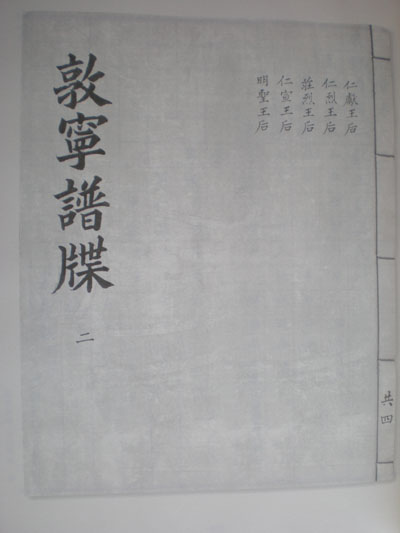 共四
仁獻王后
仁烈王后
莊烈王后
仁宣王后
明聖王后
敦寧譜牒
二